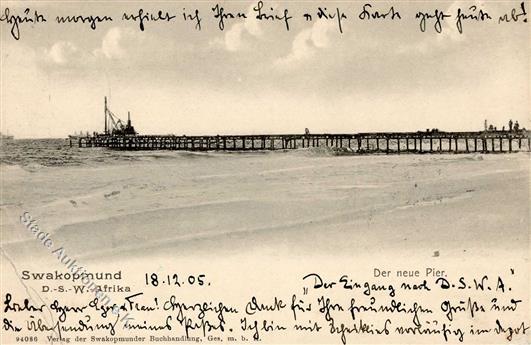 Heute morgen erhielt ich Ihren Brief & diese Karte geht heute ab!
Stade Auktionen
Der neue Pier.
Swakopmund
D.-S.-W. Afrika
18.12.05.
"Der Eingang nach D.S.W.A."
Lieber Herr! Herzlichen Dank für Ihre freundlichen Grüße und
die Übersendung meines Passes. Ich bin mit vorläufig im Depot
94086 Verlag der Swakopmunder Buchhandlung, Ges. m. b. H.